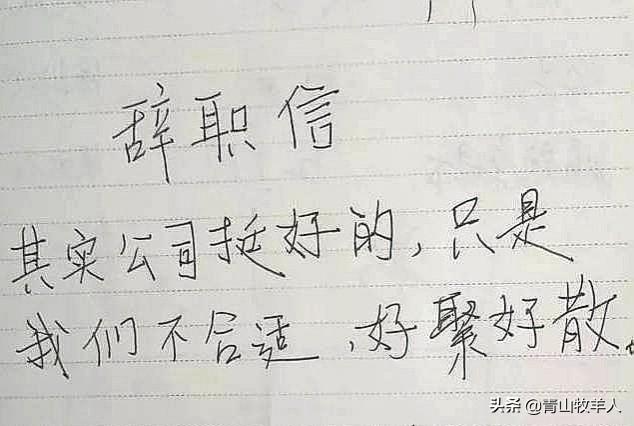 辞职信
其实公司挺好的,只是
我们不合适,好聚好散。
头条 @青山牧羊人